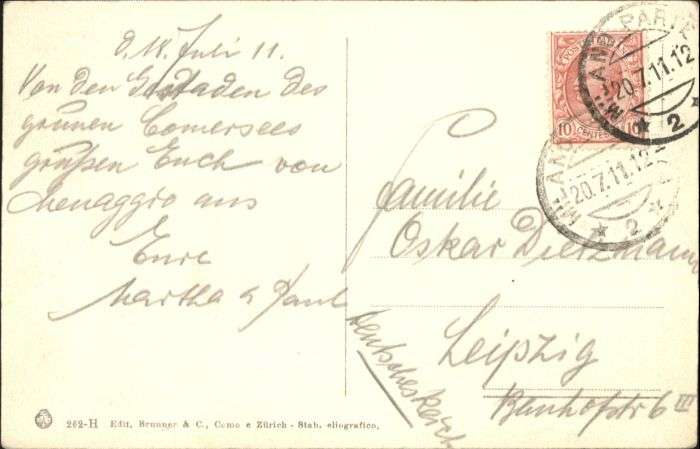 d. 18. Juli 11.
Von den Gestaden des
grünen Comersees
grüßen Euch von
Menaggio aus
Eure
Martha & Paul
Familie
Oskar Dietzmann
Leipzig
Bahnhofstr 6 III
Deutsches Reich
10 CENTES 10
MILANO PARTE
20.7.11.12
* 2 *
MILANO
20.7.11.12
* 2 *
262-H Edit. Brunner & C., Como e Zürich - Stab. eliografico.